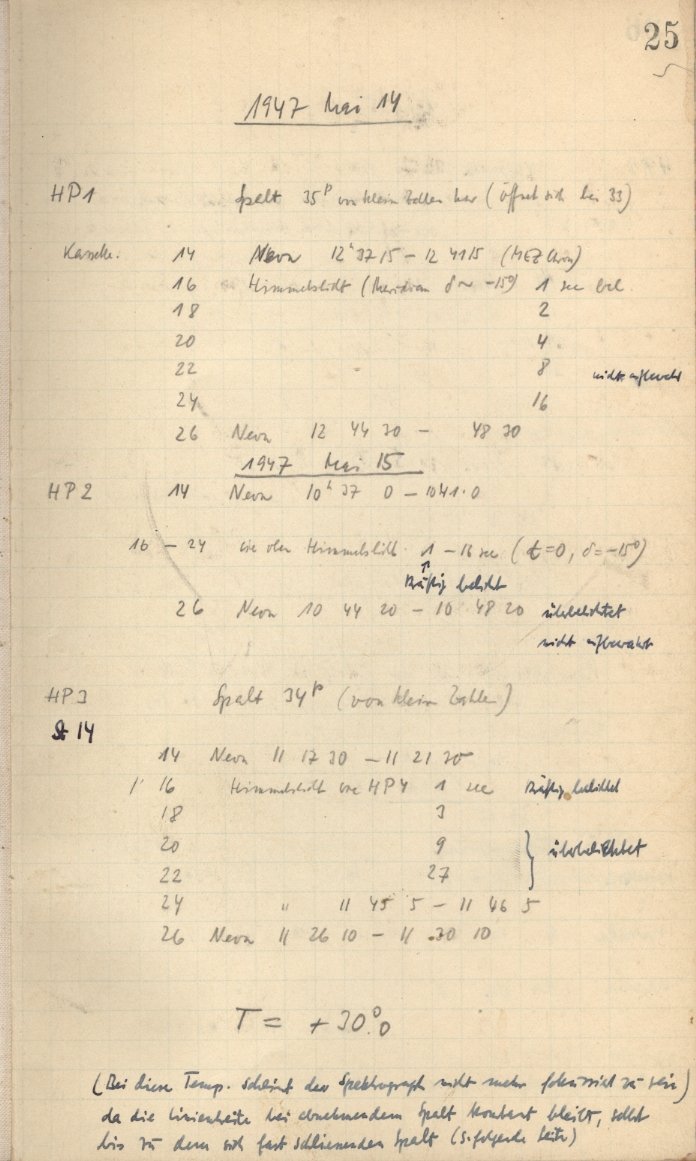 25
1947 Mai 14
HP1 Spalt 35p von klein Zahlen her (öffnet sich bei 33)
Kassette. 14 Neon 12h 37 15 – 12 41 15 (MEZ Chron)
16 Himmelslicht (Meridian δ ~ –15°) 1 sec bel.
18 2
20 4
22 8 nicht aufbewahrt
24 16
26 Neon 12 44 30 – 48 30
1947 Mai 15
HP2 14 Neon 10h 37 0 – 10 41.0
16 – 24 wie oben Himmelslicht 1 – 16 sec (t=0, δ=–15°)
↑
kräftig belicht
26 Neon 10 44 20 – 10 48 20 überbelichtet
nicht aufbewahrt
HP3 Spalt 34p (von klein Zahlen)
St 14
14 Neon 11 17 30 – 11 21 30
16 Himmelslicht wie HP4 1 sec kräftig belichtet
18 3
20 9 } überbelichtet
22 27
24 " 11 45 5 – 11 46 5
26 Neon 11 26 10 – 11 30 10
T = + 30°.0
(Bei dieser Temp. scheint der Spektrograph nicht mehr fokussiert zu sein)
da die Linienbreite bei abnehmendem Spalt konstant bleibt, selbst
bis zu dem sich fast schliessenden Spalt (s. folgende Seite)